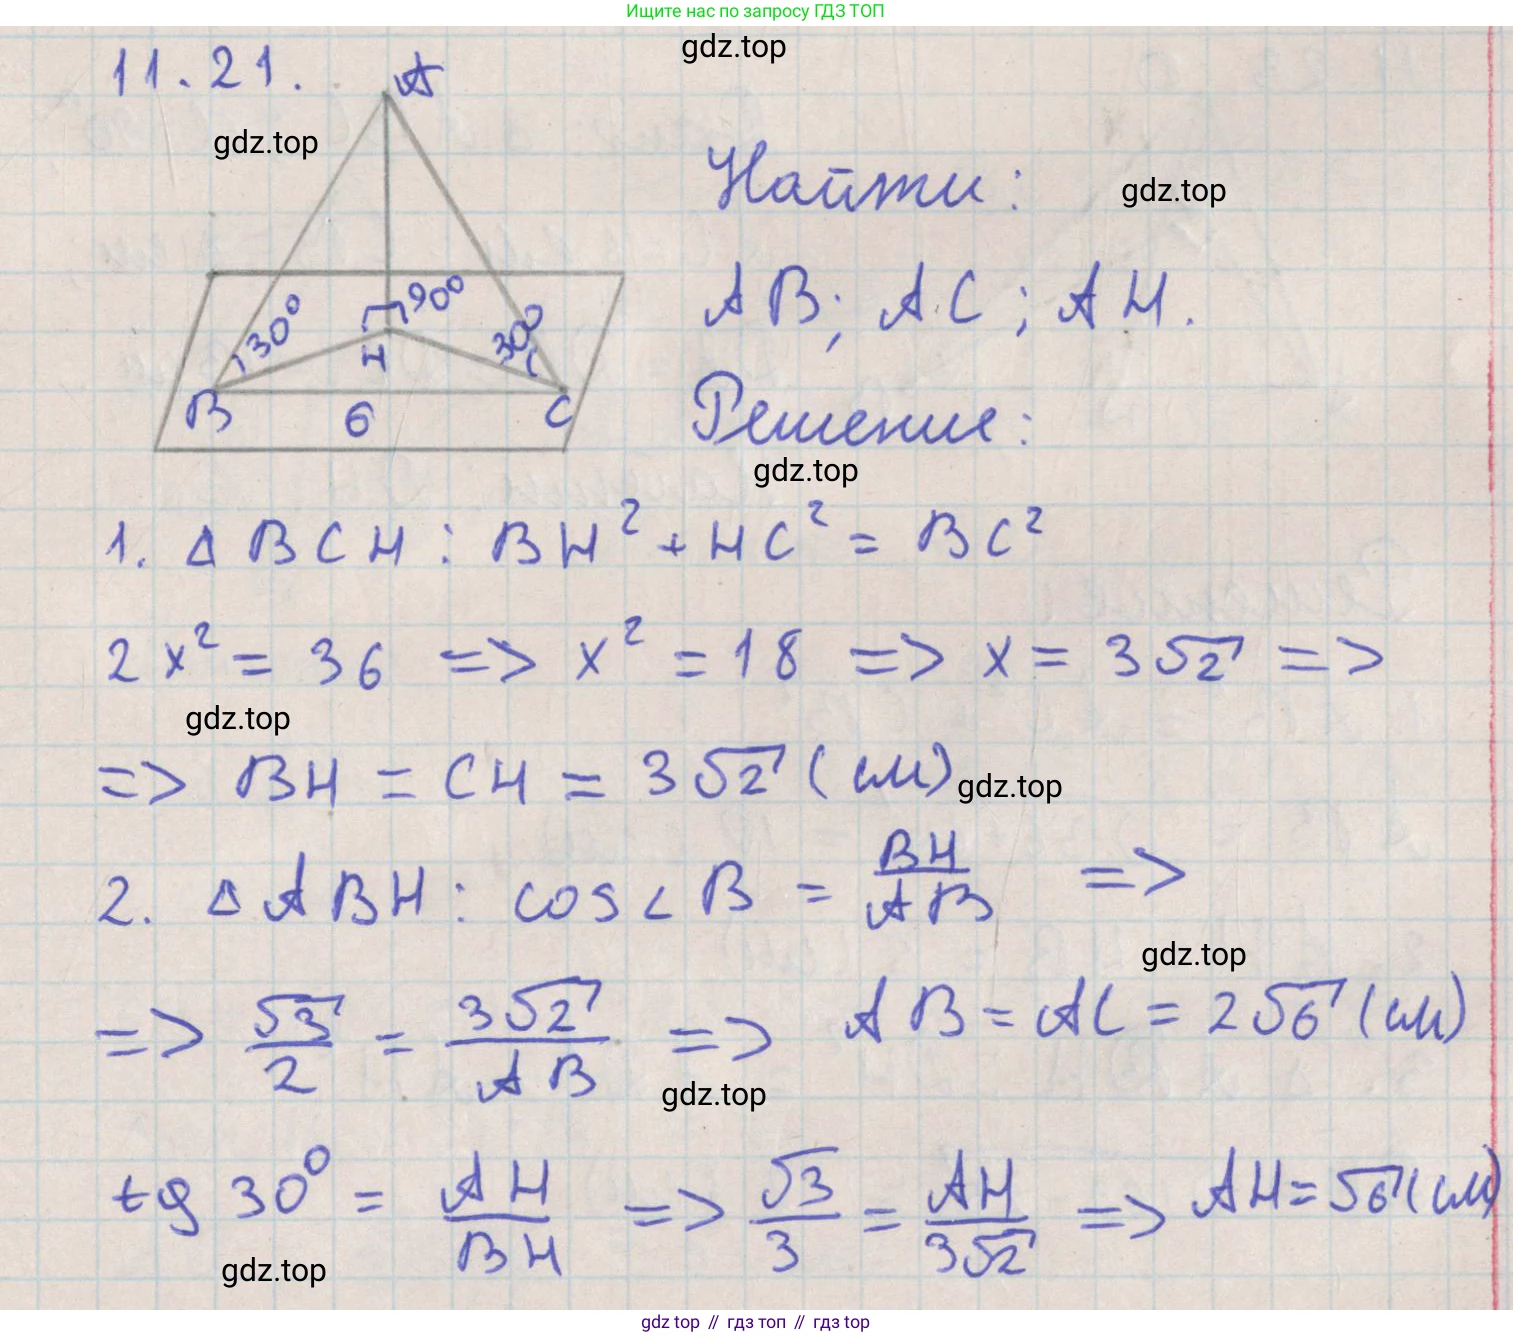 Ищите нас по запросу ГДЗ ТОП
gdz.top
11.21.
A
gdz.top
Найти:
gdz.top
AB; AC; AH.
30° 90° 30°
H
B 6 C
Решение:
gdz.top
1. Δ BCH: BH² + HC² = BC²
2x² = 36 => x² = 18 => x = 3√2 =>
gdz.top
=> BH = CH = 3√2 (см)
gdz.top
2. Δ ABH: cos∠B = BH/AB =>
gdz.top
=> √3/2 = 3√2/AB => AB = AC = 2√6 (см)
gdz.top
tg 30° = AH/BH => √3/3 = AH/3√2 => AH = √6 (см)
gdz.top
gdz top // гдз топ // гдз top